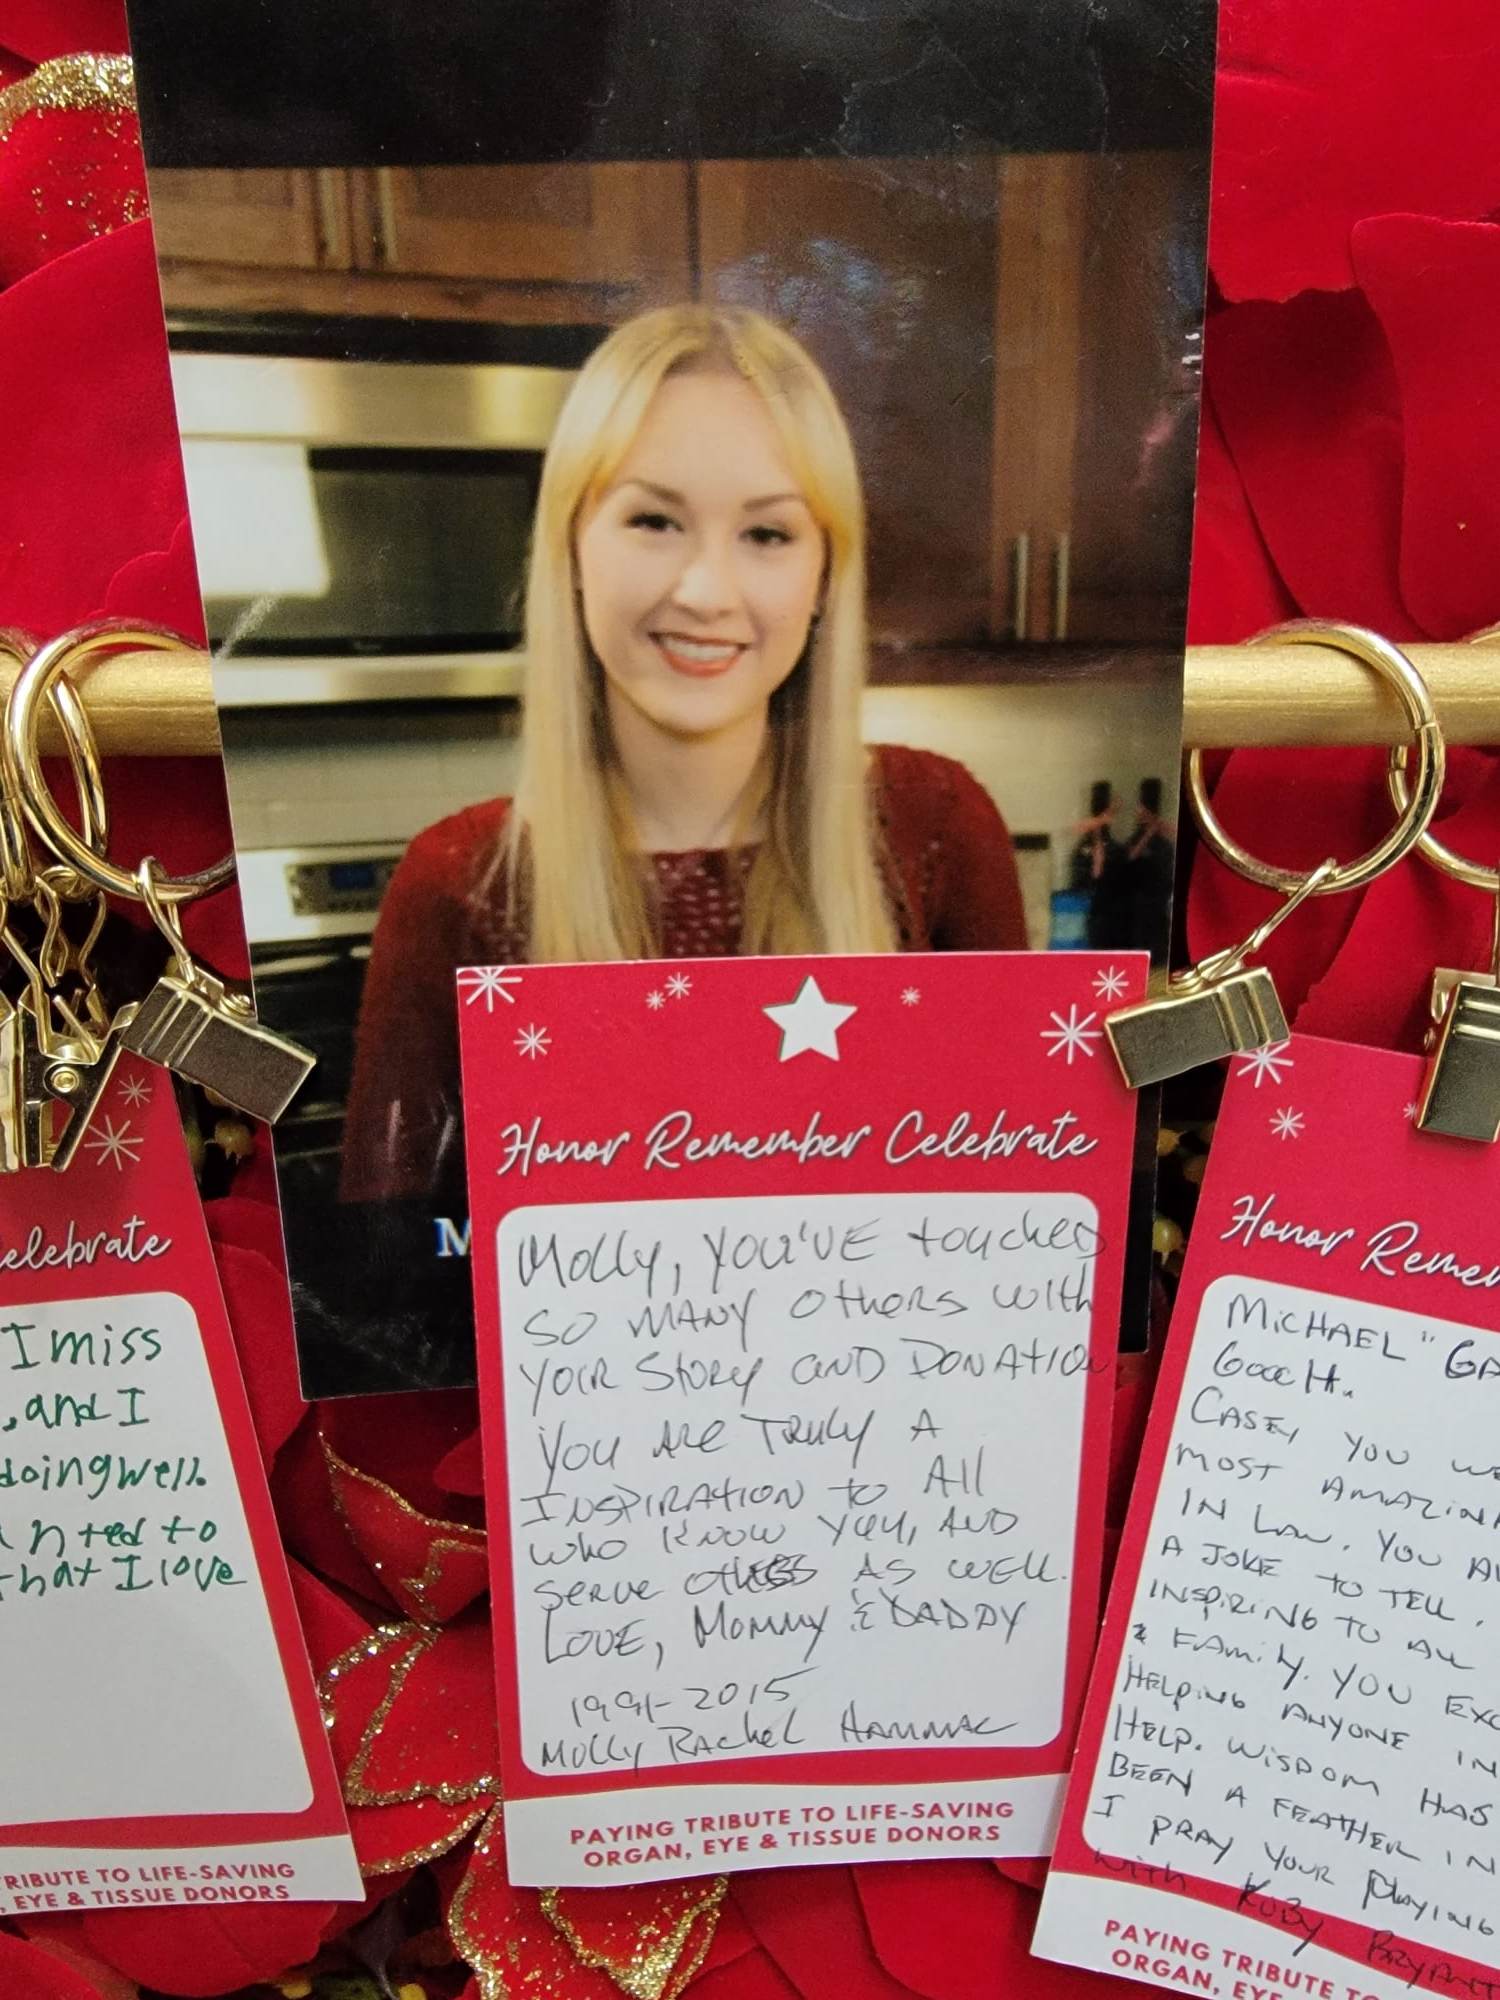 M
Honor Remember Celebrate
Molly, you've touched
so many others with
your story and donation
you are truly a
inspiration to all
who know you, and
serve others as well.
Love, Mommy & Daddy
1991-2015
Molly Rachel Hammac
PAYING TRIBUTE TO LIFE-SAVING
ORGAN, EYE & TISSUE DONORS
elebrate
I miss
, and I
doing well.
nted to
that I love
RIBUTE TO LIFE-SAVING
, EYE & TISSUE DONORS
Honor Remem
MICHAEL "GA
Gooch.
CASEY YOU WE
MOST AMAZIN
IN LAW. YOU AL
A JOKE TO TELL,
INSPIRING TO ALL
& FAMILY. YOU EXC
HELPING ANYONE IN
HELP. WISDOM HAS
BEEN A FEATHER IN
I PRAY YOUR PLAYING
with Ruby Bryant
PAYING TRIBUTE TO
ORGAN, EYE